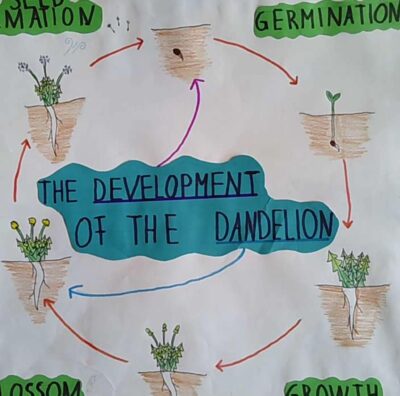 SEED
MATION
GERMINATION
THE DEVELOPMENT
OF THE DANDELION
LOSSOM
GROWTH